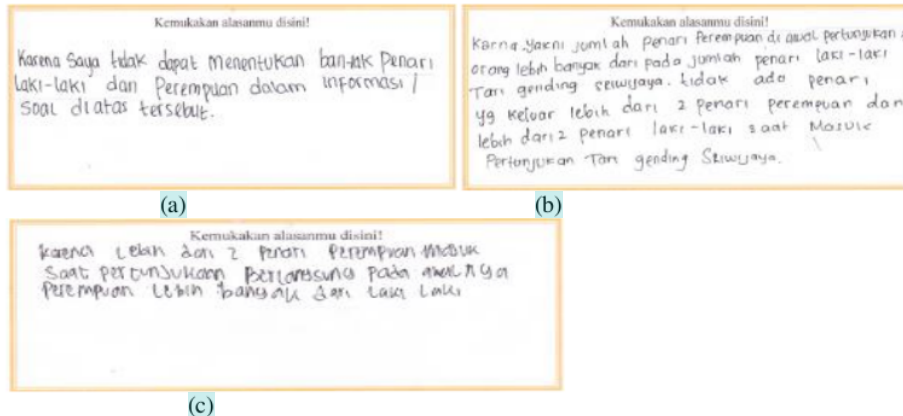 Kemukakan alasanmu disini!
Karena Saya tidak dapat menentukan banyak Penari
Laki-laki dan Perempuan dalam informasi /
Soal diatas tersebut.
(a)
Kemukakan alasanmu disini!
Karna yakni jumlah penari Perempuan di awal pertunjukan
orang lebih banyak dari pada jumlah penari laki-laki
Tari gending seiwijaya. tidak ado penari
yg keluar lebih dari 2 penari perempuan dan
lebih dari 2 penari laki-laki saat Masuk
Pertunjukan Tari gending Skiwijaya.
(b)
Kemukakan alasanmu disini!
karena Lebih dari 2 Penari Perempuan masuk
Saat pertunjukan Berlangsung Pada awalnya
Perempuan Lebih banyak dari Laki Laki
(c)